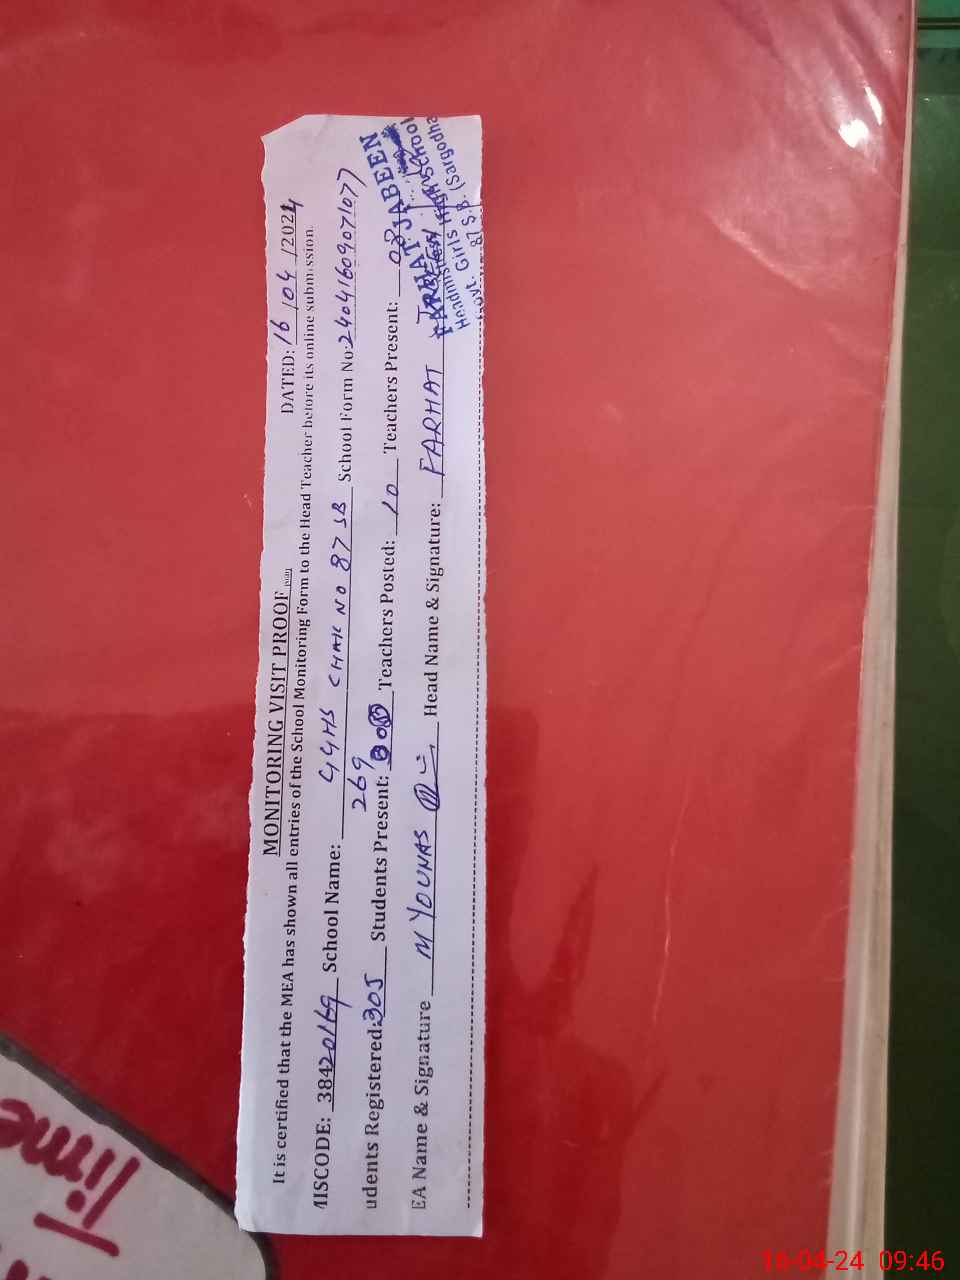 MONITORING VISIT PROOF
DATED: 16/04/2024
It is certified that the MEA has shown all entries of the School Monitoring Form to the Head Teacher before its online submission.
MISCODE: 38420169 School Name: GGHS CHAK NO 87 SB School Form No: 24041609071077
269
udents Registered: 305 Students Present: Teachers Posted: 10 Teachers Present: 08
EA Name & Signature M YOUNAS Head Name & Signature: FARHAT
FARHAT JABEEN
Headmistress
Govt. Girls High School
87 S.B. (Sargodha
Time
16-04-24 09:46